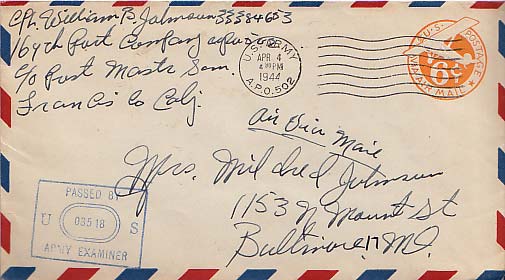 Cpl. William B. Johnson 33384653
164th Port Company APO 502
c/o Post Mastr San.
Francis Co Calj.
U.S. ARMY
APR 4
PM
1944
A.P.O. 502
U.S. POSTAGE
6¢
VIA AIR MAIL
Air Via Mail
Mrs. Mildred Johnson
1153 N Mount St
Baltimore, 17 MD.
PASSED BY
U 03518 S
ARMY EXAMINER